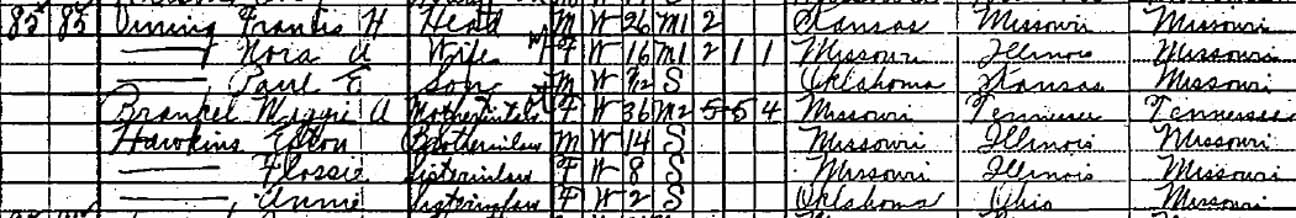 85 85 Vining Francis H Head M W 26 M1 2 Kansas Missouri Missouri
Nora A Wife F W 16 M1 2 1 1 Missouri Illinois Missouri
Paul E Son M W 9/12 S Oklahoma Kansas Missouri
Brankel Maggie A Motherinlaw F W 36 M2 5 5 4 Missouri Tennessee Tennessee
Hawkins Elton Brotherinlaw M W 14 S Missouri Illinois Missouri
Flossie Sisterinlaw F W 8 S Missouri Illinois Missouri
Annie Sisterinlaw F W 2 S Oklahoma Ohio Missouri